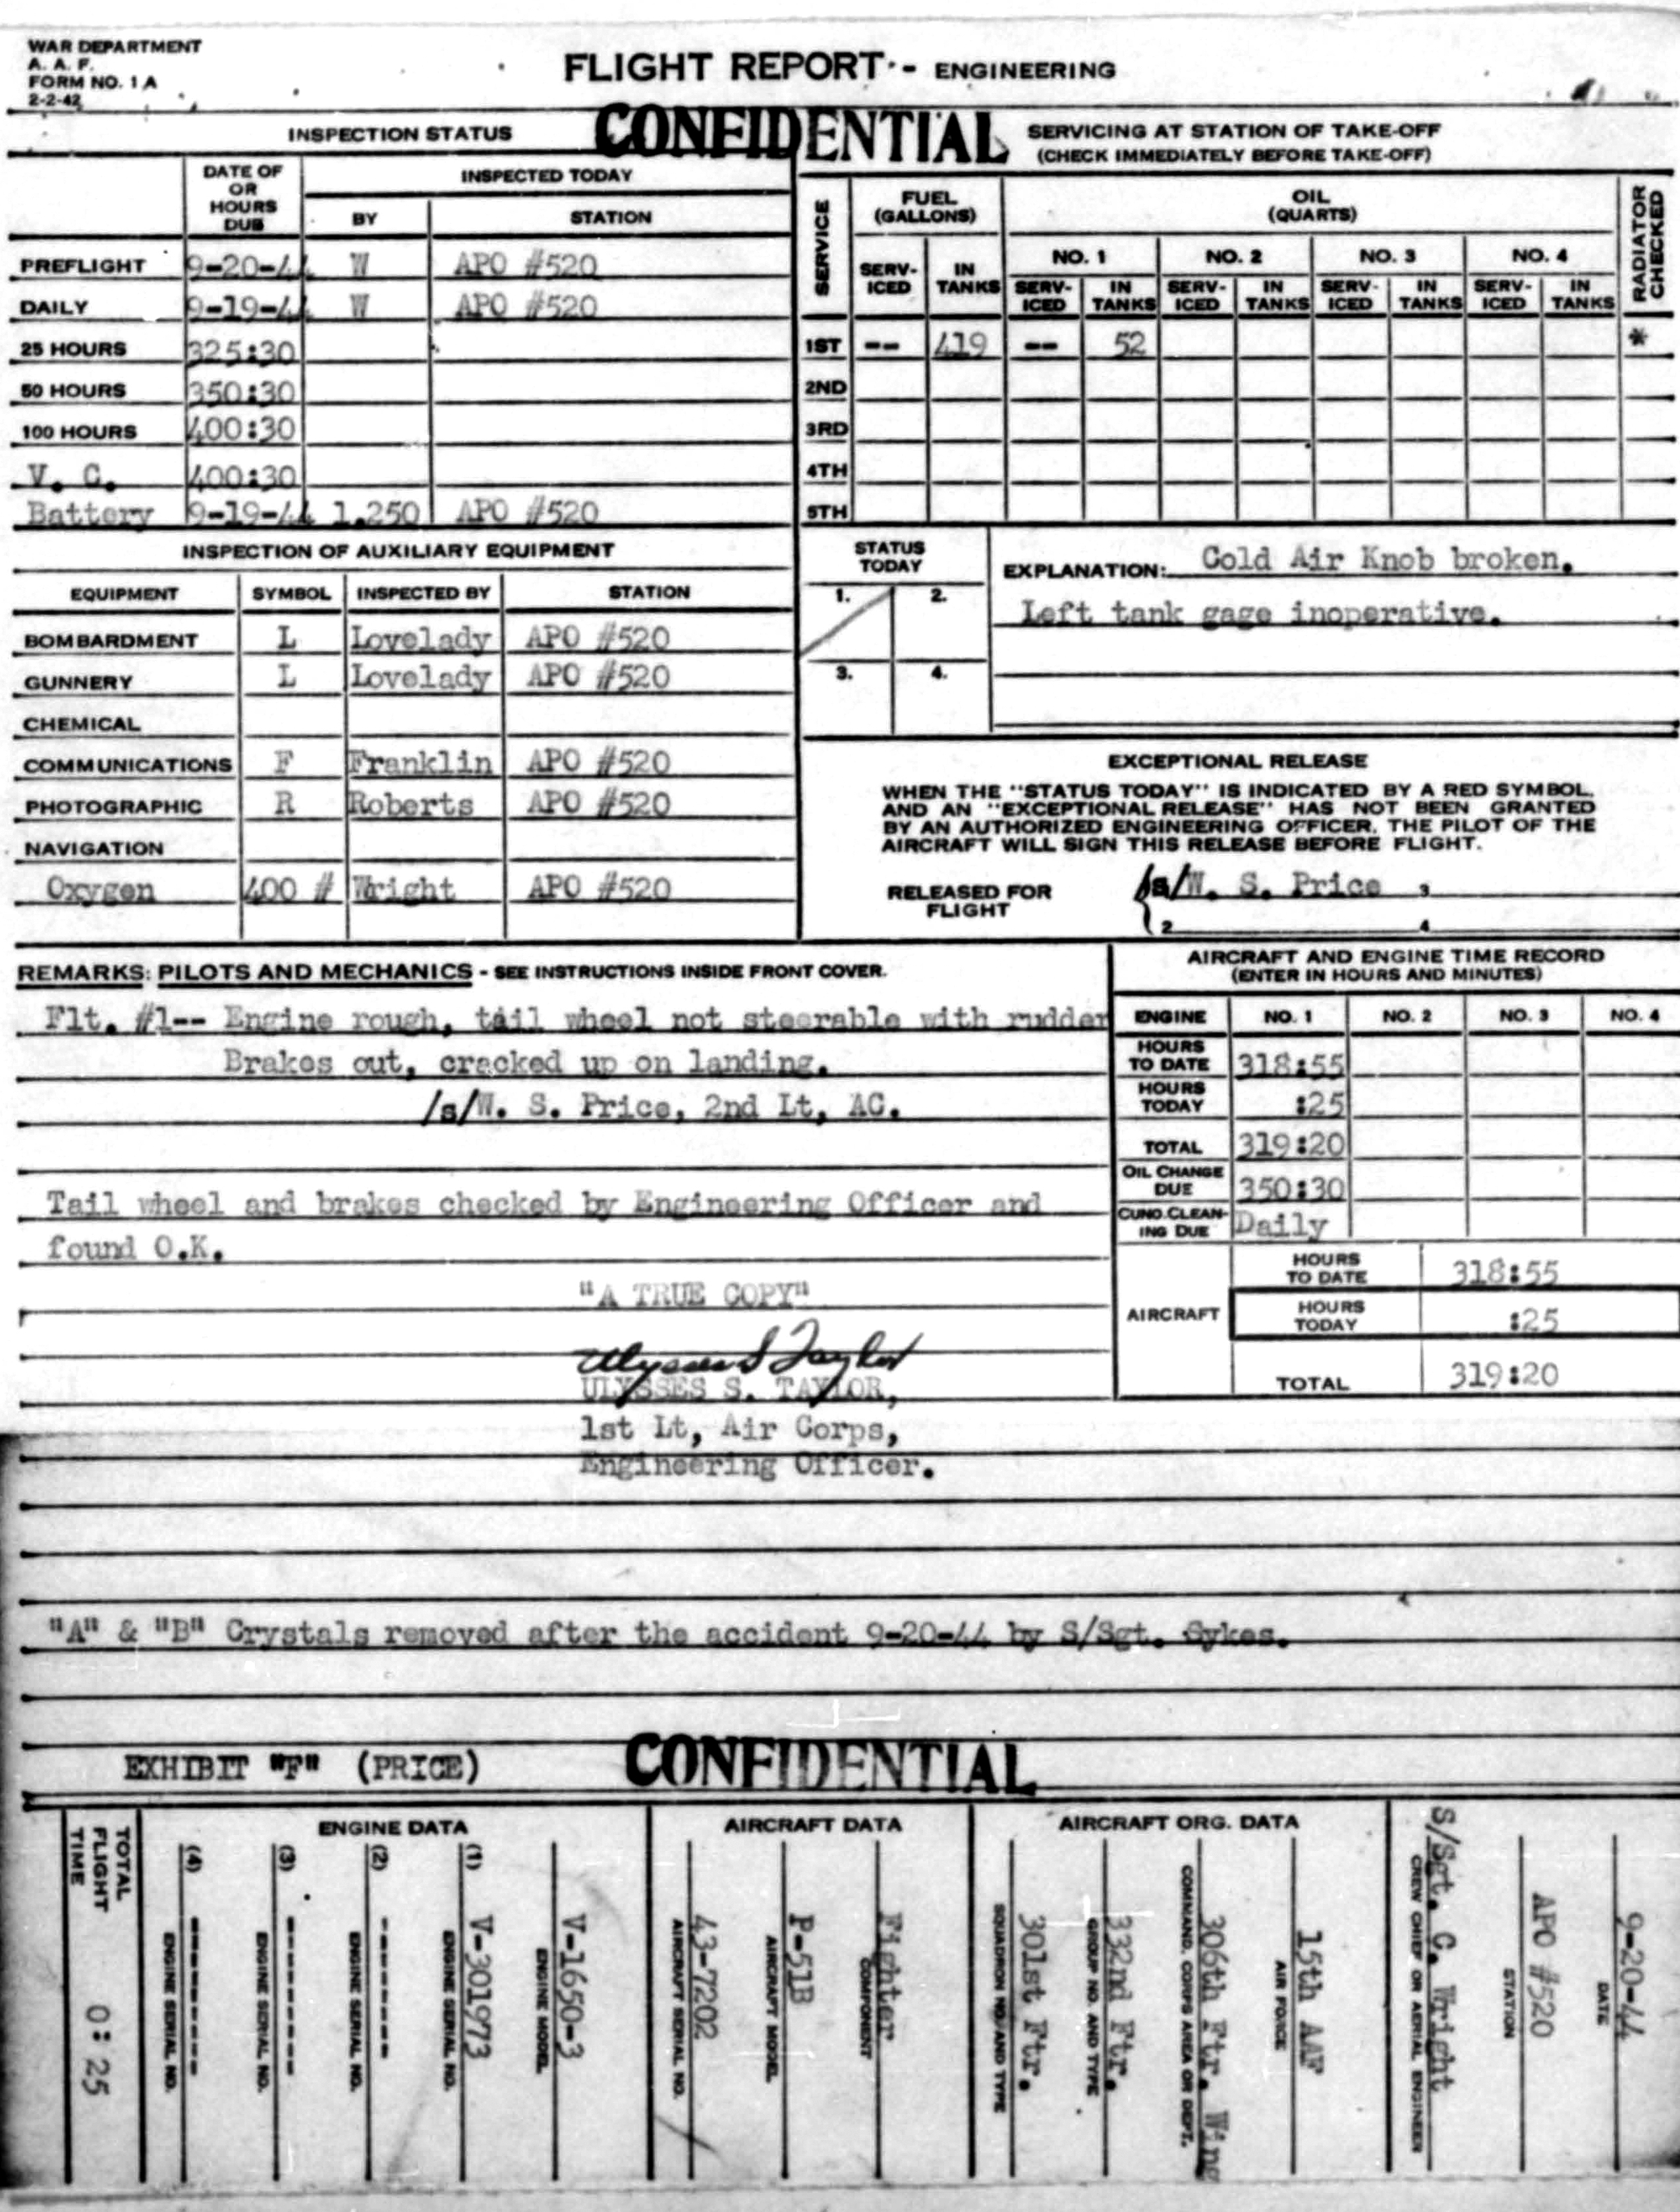 WAR DEPARTMENT
A. A. F.
FORM NO. 1 A
2-2-42
FLIGHT REPORT - ENGINEERING
CONFIDENTIAL
INSPECTION STATUS
DATE OF OR HOURS DUE
INSPECTED TODAY
BY STATION
PREFLIGHT 9-20-44 W APO #520
DAILY 9-19-44 W APO #520
25 HOURS 325:30
50 HOURS 350:30
100 HOURS 400:30
V. C. 400:30
Battery 9-19-44 1.250 APO #520
SERVICING AT STATION OF TAKE-OFF
(CHECK IMMEDIATELY BEFORE TAKE-OFF)
SERVICE
FUEL (GALLONS)
OIL (QUARTS)
RADIATOR CHECKED
NO. 1 NO. 2 NO. 3 NO. 4
SERV-ICED IN TANKS SERV-ICED IN TANKS SERV-ICED IN TANKS SERV-ICED IN TANKS SERV-ICED IN TANKS
1ST -- 419 -- 52 *
2ND
3RD
4TH
5TH
INSPECTION OF AUXILIARY EQUIPMENT
EQUIPMENT SYMBOL INSPECTED BY STATION
BOMBARDMENT L Lovelady APO #520
GUNNERY L Lovelady APO #520
CHEMICAL
COMMUNICATIONS F Franklin APO #520
PHOTOGRAPHIC R Roberts APO #520
NAVIGATION
Oxygen 400 # Wright APO #520
STATUS TODAY
1. 2.
3. 4.
EXPLANATION: Cold Air Knob broken.
Left tank gage inoperative.
EXCEPTIONAL RELEASE
WHEN THE "STATUS TODAY" IS INDICATED BY A RED SYMBOL,
AND AN "EXCEPTIONAL RELEASE" HAS NOT BEEN GRANTED
BY AN AUTHORIZED ENGINEERING OFFICER, THE PILOT OF THE
AIRCRAFT WILL SIGN THIS RELEASE BEFORE FLIGHT.
RELEASED FOR FLIGHT
/s/W. S. Price 3
2 4
REMARKS: PILOTS AND MECHANICS - SEE INSTRUCTIONS INSIDE FRONT COVER.
Flt. #1-- Engine rough, tail wheel not steerable with rudder
Brakes out, cracked up on landing.
/s/W. S. Price, 2nd Lt, AC.
Tail wheel and brakes checked by Engineering Officer and
found O.K.
"A TRUE COPY"
Ulysses S Taylor
ULYSSES S. TAYLOR,
1st Lt, Air Corps,
Engineering Officer.
AIRCRAFT AND ENGINE TIME RECORD
(ENTER IN HOURS AND MINUTES)
ENGINE NO. 1 NO. 2 NO. 3 NO. 4
HOURS TO DATE 318:55
HOURS TODAY :25
TOTAL 319:20
OIL CHANGE DUE 350:30
CUNO CLEAN-ING DUE Daily
AIRCRAFT
HOURS TO DATE 318:55
HOURS TODAY :25
TOTAL 319:20
"A" & "B" Crystals removed after the accident 9-20-44 by S/Sgt. Sykes.
EXHIBIT "F" (PRICE)
CONFIDENTIAL
TOTAL FLIGHT TIME 0:25
ENGINE DATA
(4) ------- ENGINE SERIAL NO.
(3) ------- ENGINE SERIAL NO.
(2) ------ ENGINE SERIAL NO.
(1) V-301973 ENGINE SERIAL NO.
V-1650-3 ENGINE MODEL
AIRCRAFT DATA
43-7202 AIRCRAFT SERIAL NO.
P-51B AIRCRAFT MODEL
Fighter COMPONENT
AIRCRAFT ORG. DATA
301st Ftr. SQUADRON NO. AND TYPE
332nd Ftr. GROUP NO. AND TYPE
306th Ftr. Wing COMMAND, CORPS AREA OR DEPT.
15th AAF AIR FORCE
S/Sgt. C. Wright CREW CHIEF OR AERIAL ENGINEER
APO #520 STATION
9-20-44 DATE